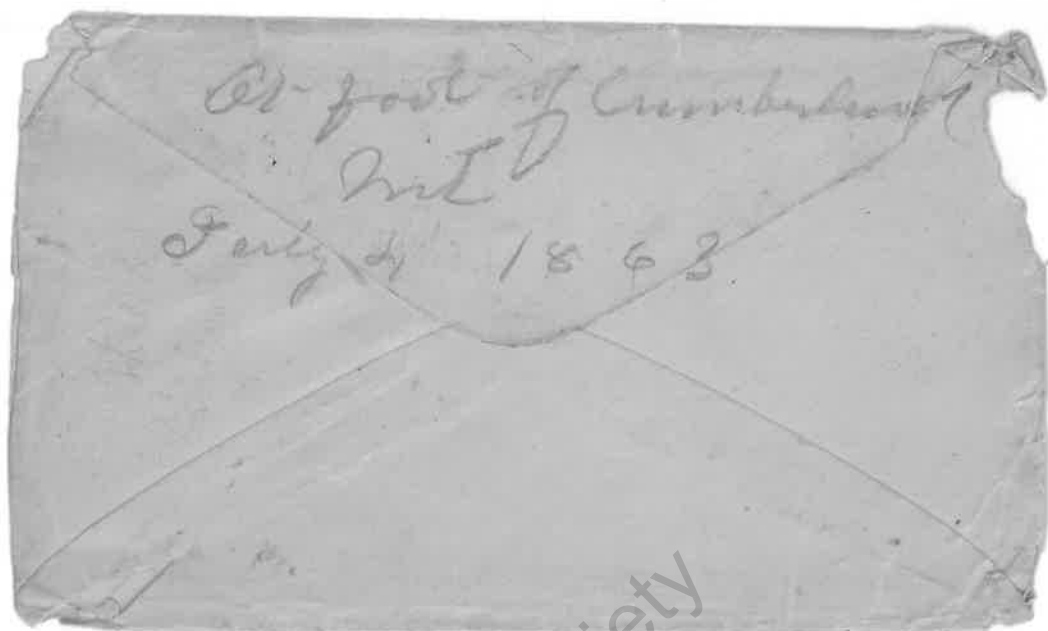 At foot of Cumberland
Mt
July 4 1863
iety